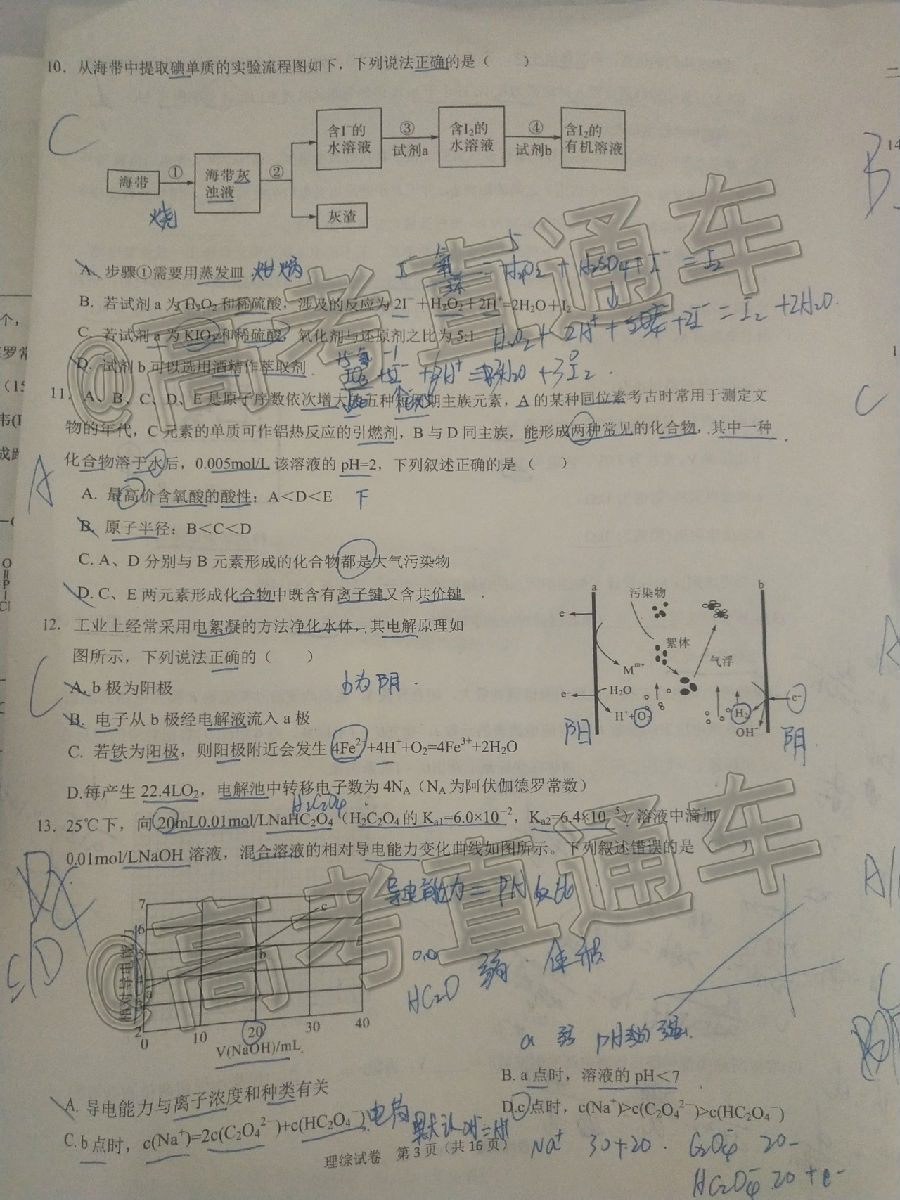 10. 从海带中提取碘单质的实验流程图如下，下列说法正确的是（ ）
C
海带
①
海带灰浊液
②
含I⁻的水溶液
③
试剂a
含I₂的水溶液
④
试剂b
含I₂的有机溶液
灰渣
烧
A. 步骤①需要用蒸发皿 坩埚
B. 若试剂a为H₂O₂和稀硫酸，涉及的反应为2I⁻+H₂O₂+2H⁺=2H₂O+I₂
C. 若试剂a为KIO₃和稀硫酸，氧化剂与还原剂之比为5:1
D. 试剂b可以选用酒精作萃取剂
11. A、B、C、D、E是原子序数依次增大的五种短周期主族元素，A的某种同位素考古时常用于测定文
物的年代，C元素的单质可作铝热反应的引燃剂，B与D同主族，能形成两种常见的化合物，其中一种
化合物溶于水后，0.005mol/L该溶液的pH=2，下列叙述正确的是（ ）
A
A. 最高价含氧酸的酸性：A＜D＜E
B. 原子半径：B＜C＜D
C. A、D分别与B元素形成的化合物都是大气污染物
D. C、E两元素形成化合物中既含有离子键又含共价键
12. 工业上经常采用电絮凝的方法净化水体，其电解原理如
图所示，下列说法正确的（ ）
C
A. b极为阳极 b为阴
B. 电子从b极经电解液流入a极
C. 若铁为阳极，则阳极附近会发生4Fe²⁺+4H⁺+O₂=4Fe³⁺+2H₂O
D.每产生22.4LO₂，电解池中转移电子数为4Nₐ（Nₐ为阿伏伽德罗常数）
a
b
污染物
絮体
气浮
e⁻
Mᵐ⁺
e⁻
H₂O
H⁺+O₂
H₂
OH⁻
e⁻
阳
阴
H₂C₂O₄
13. 25℃下，向20mL0.01mol/LNaHC₂O₄（H₂C₂O₄的Kₐ₁=6.0×10⁻²，Kₐ₂=6.4×10⁻⁵）溶液中滴加
0.01mol/LNaOH溶液，混合溶液的相对导电能力变化曲线如图所示。下列叙述错误的是
C/D
相对导电能力
7
6
5
4
3
2
0
10
20
30
40
a
b
c
V(NaOH)/mL
A. 导电能力与离子浓度和种类有关
B. a点时，溶液的pH＜7
C. b点时，c(Na⁺)=2c(C₂O₄²⁻)+c(HC₂O₄⁻)
D.c点时，c(Na⁺)>c(C₂O₄²⁻)>c(HC₂O₄⁻)
电荷
Na⁺ 30+20
理综试卷 第3页（共16页）
@高考直通车
@高考直通车